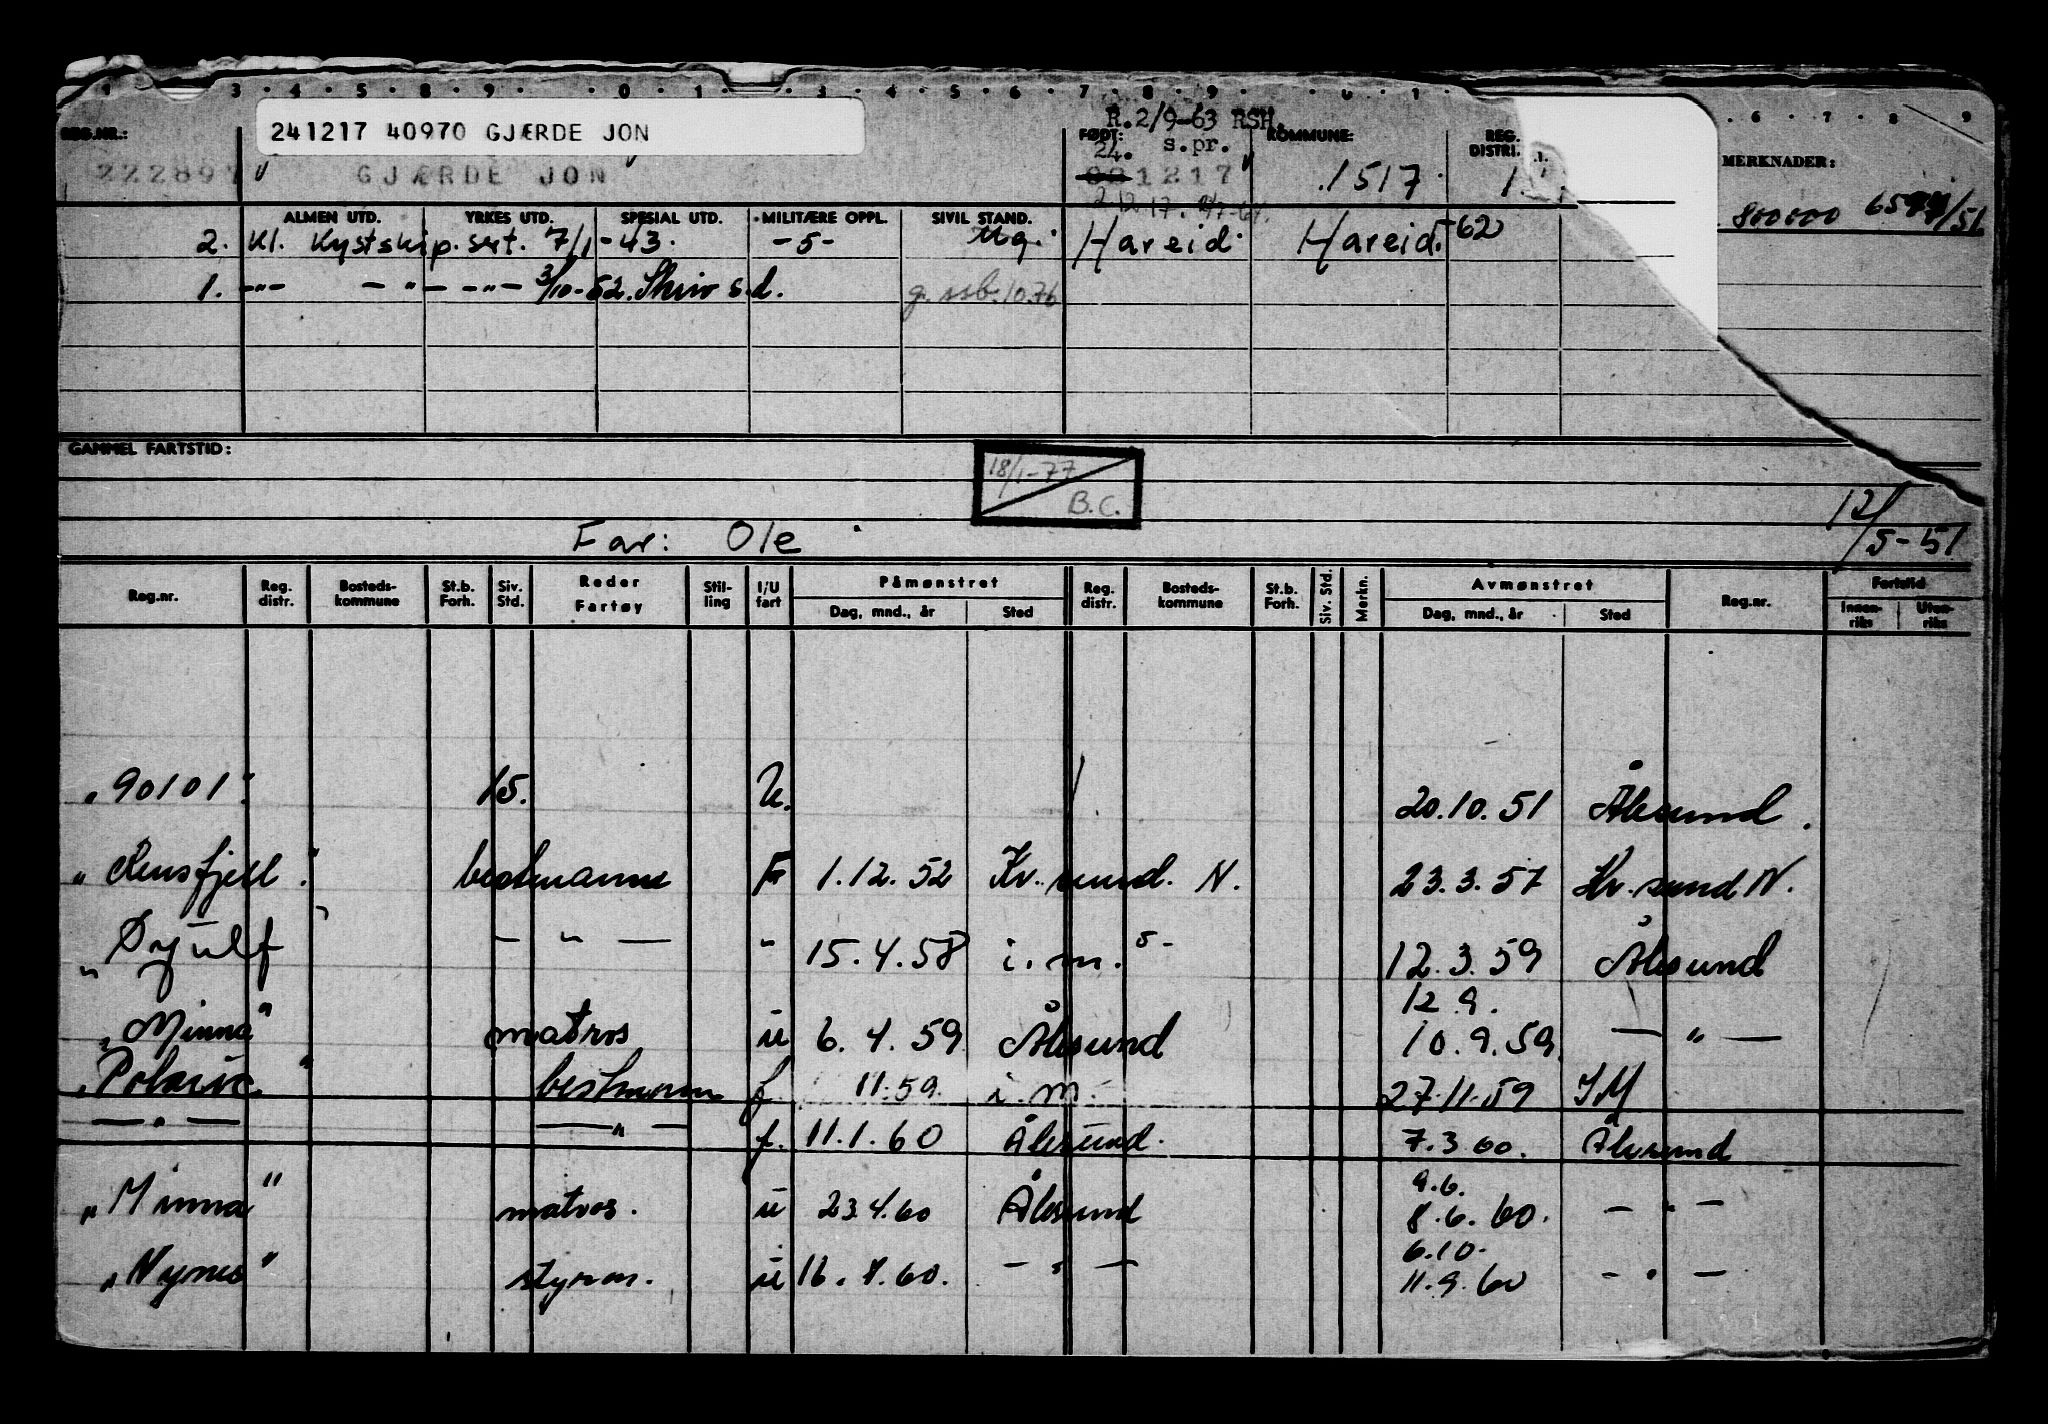 R.2/9-63 RSH.
241217 40970 GJÆRDE JON
REG.NR.: FØDT: s.pr. KOMMUNE: REG. DISTRI. MERKNADER:
24.
GJÆRDE JON 1217 1517 1
2.12.17.
800000
ALMEN UTD. YRKES UTD. SPESIAL UTD. MILITÆRE OPPL. SIVIL STAND.
2. Kl. Kystskip.sert. 7/1-43. -5- Ug. Hareid. Hareid.-62
1. -"- -"- -"- 3/10-52. Skriv s.d. g. ssb. 10.76
GAMMEL FARTSTID:
18/1-77
B.C.
12/5-51
Far: Ole
Reg.nr. Reg. distr. Bosteds-kommune St.b. Forh. Siv. Std. Reder Fartøy Stil-ling I/U fart Påmønstret Dag, mnd., år Sted Reg. distr. Bosteds-kommune St.b. Forh. Siv. Std. Merkn. Avmønstret Dag, mnd., år Sted Reg.nr. Fartstid Innen-riks Uten-riks
"90101" 15. U. 20.10.51 Ålesund.
bestmann F 1.12.52 Kr.sund. N. 23.3.57 Kr.sund N.
— " — " 15.4.58 i.m. 12.3.59 Ålesund
12.9.
"Minna" matros u 6.4.59 Ålesund 10.9.59 — " —
bestmann f 11.59. i.m. 27.11.59 IM
— " — — " — f. 11.1.60 Ålesund. 7.3.60. Ålesund
9.6.
"Minna" matros. u 23.4.60 Ålesund 8.6.60. — " —
6.10.
styrm. u — " — 11.9.60 — " —